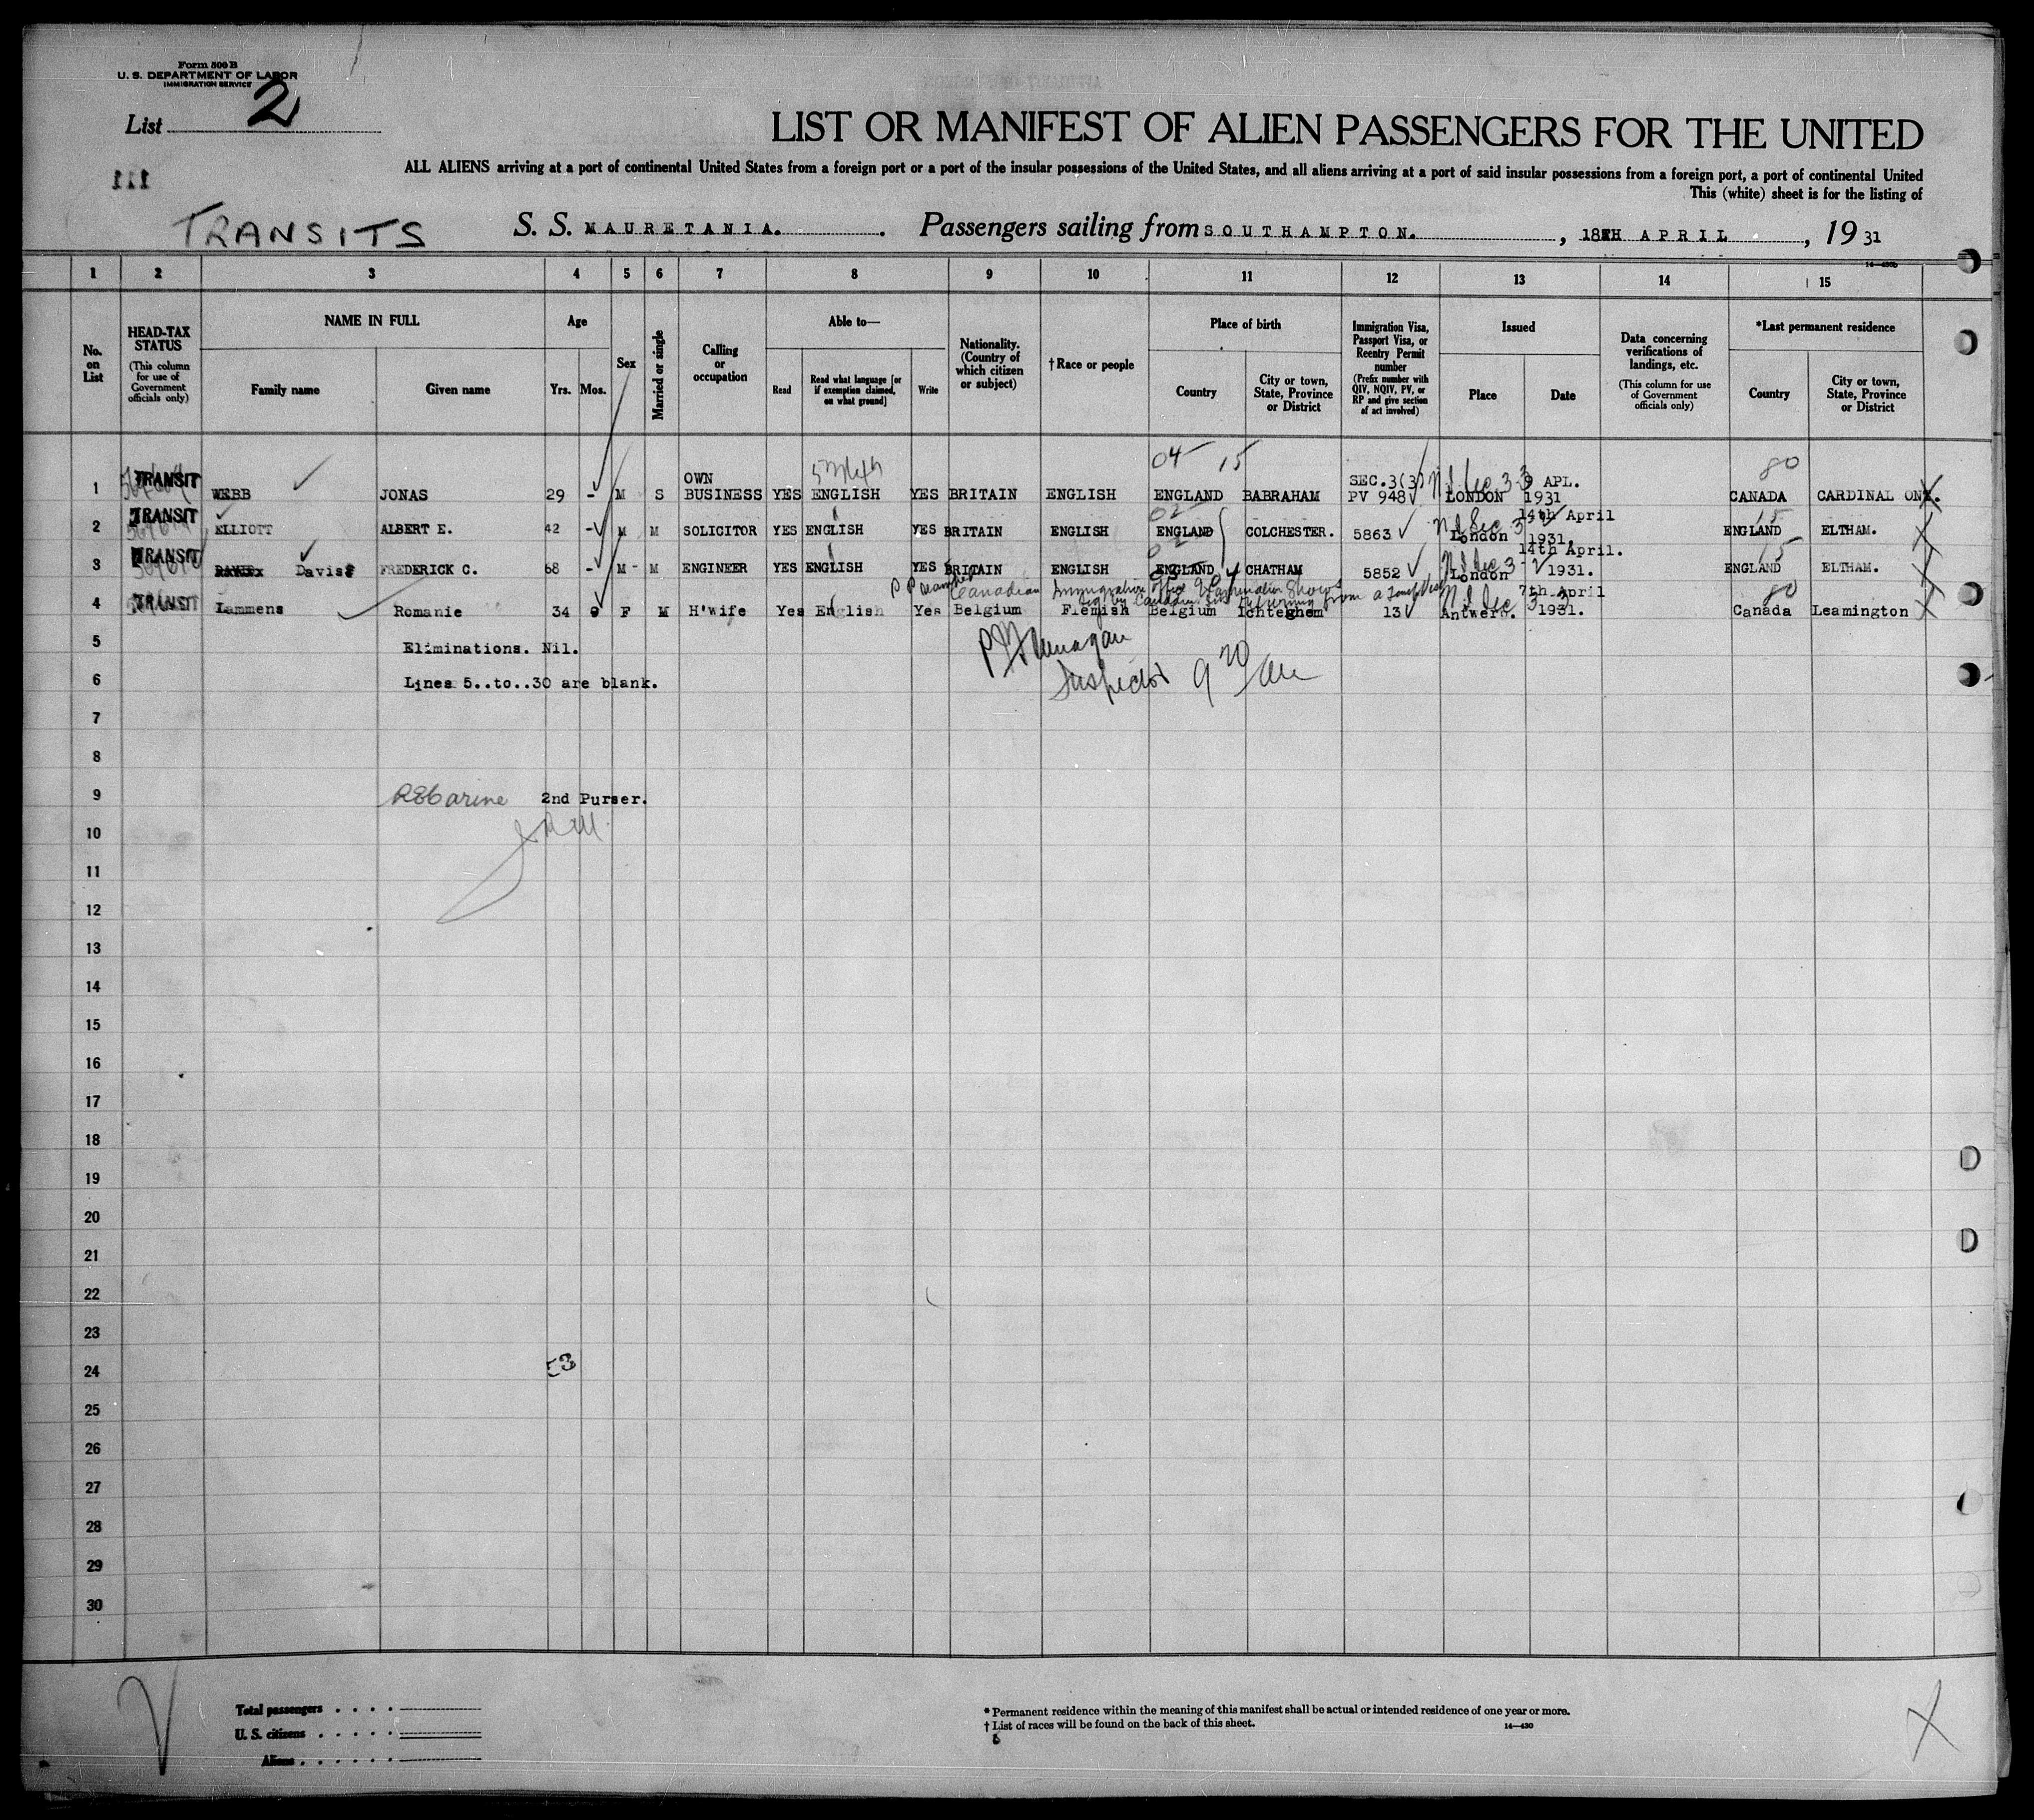 Form 500 B
U. S. DEPARTMENT OF LABOR
IMMIGRATION SERVICE
List 2
LIST OR MANIFEST OF ALIEN PASSENGERS FOR THE UNITED
ALL ALIENS arriving at a port of continental United States from a foreign port or a port of the insular possessions of the United States, and all aliens arriving at a port of said insular possessions from a foreign port, a port of continental United
This (white) sheet is for the listing of
111
TRANSITS S. S. MAURETANIA. Passengers sailing from SOUTHAMPTON. , 18TH APRIL , 19 31
14—430b
1 2 3 4 5 6 7 8 9 10 11 12 13 14 15
No. on List
HEAD-TAX STATUS (This column for use of Government officials only)
NAME IN FULL Family name Given name
Age Yrs. Mos.
Sex
Married or single
Calling or occupation
Able to— Read Read what language [or if exemption claimed, on what ground] Write
Nationality. (Country of which citizen or subject)
†Race or people
Place of birth Country City or town, State, Province or District
Immigration Visa, Passport Visa, or Reentry Permit number (Prefix number with QIV, NQIV, PV, or RP and give section of act involved)
Issued Place Date
Data concerning verifications of landings, etc. (This column for use of Government officials only)
*Last permanent residence Country City or town, State, Province or District
04 15 80
1 TRANSIT WEBB JONAS 29 - M S OWN BUSINESS YES ENGLISH YES BRITAIN ENGLISH ENGLAND BABRAHAM SEC.3(3) PV 948 LONDON 9 APL. 1931 CANADA CARDINAL ONT.
02 15
2 TRANSIT ELLIOTT ALBERT E. 42 - M M SOLICITOR YES ENGLISH YES BRITAIN ENGLISH ENGLAND COLCHESTER. 5863 London 14th April 1931. ENGLAND ELTHAM.
15
3 TRANSIT Davis FREDERICK C. 68 - M - M ENGINEER YES ENGLISH YES BRITAIN ENGLISH ENGLAND CHATHAM 5852 London 14th April. 1931. ENGLAND ELTHAM.
Canadian Immigration
80
4 TRANSIT Lammens Romanie 34 9 F M H'wife Yes English Yes Belgium Flemish Belgium Ichteghem 13 Antwerp. 7th April 1931. Canada Leamington
5 Eliminations. Nil.
Inspector 9 20 am
6 Lines 5..to..30 are blank.
7
8
9 2nd Purser.
10
11
12
13
14
15
16
17
18
19
20
21
22
23
24 53
25
26
27
28
29
30
Total passengers
U. S. citizens
Aliens
* Permanent residence within the meaning of this manifest shall be actual or intended residence of one year or more.
† List of races will be found on the back of this sheet.
14—430